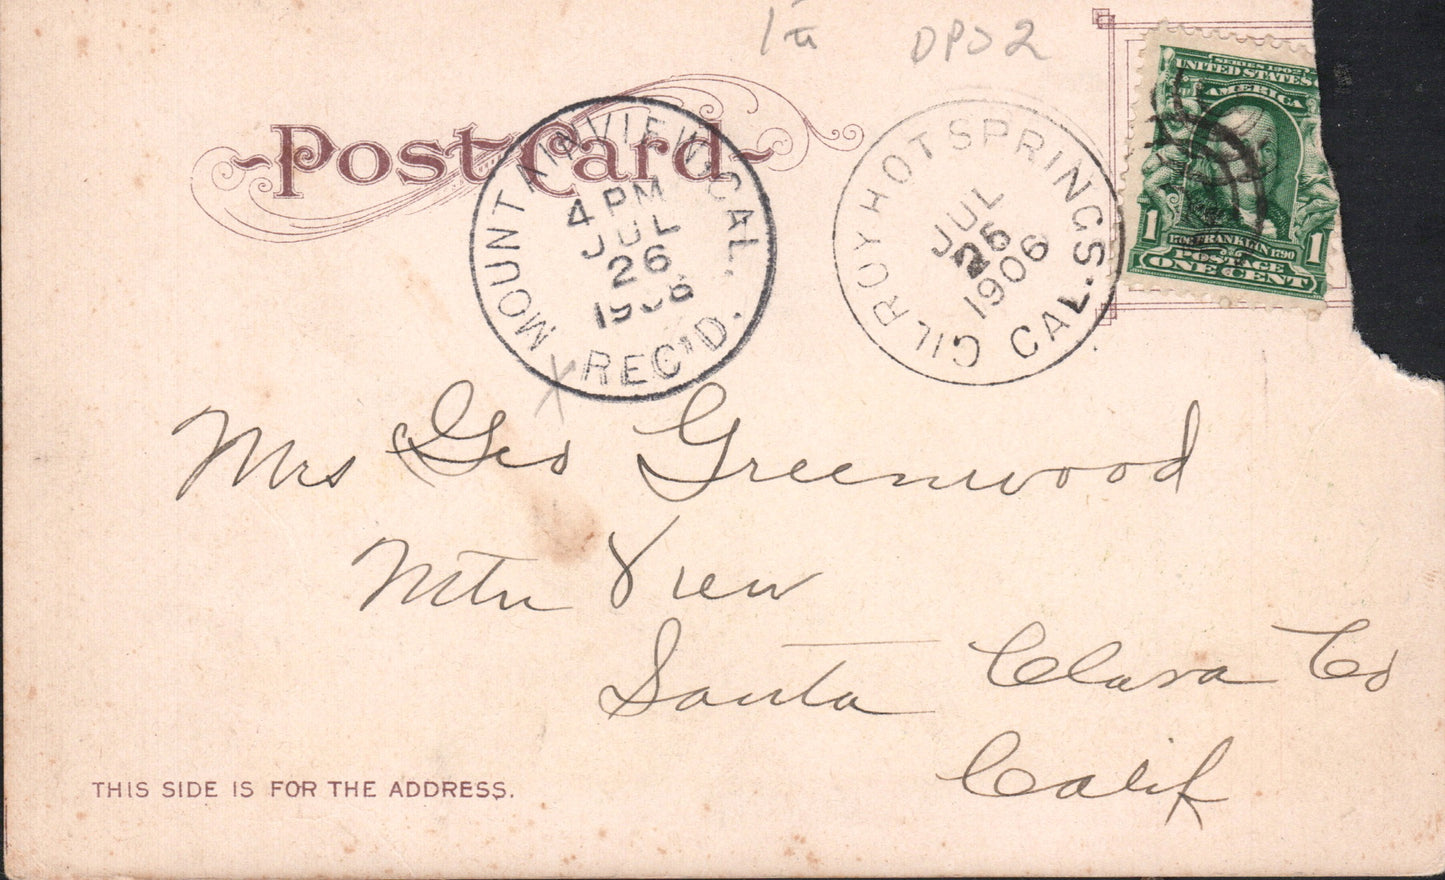 DPO 2
Post Card
MOUNTAIN VIEW, CAL.
4 PM
JUL
26
1906
REC'D.
GILROY HOT SPRINGS
CAL.
JUL
26
1906
SERIES 1902
UNITED STATES
AMERICA
FRANKLIN 1790
POSTAGE
1 ONE CENT 1
Mrs Geo Greenwood
Mtn View
Santa Clara Co
Calif
THIS SIDE IS FOR THE ADDRESS.